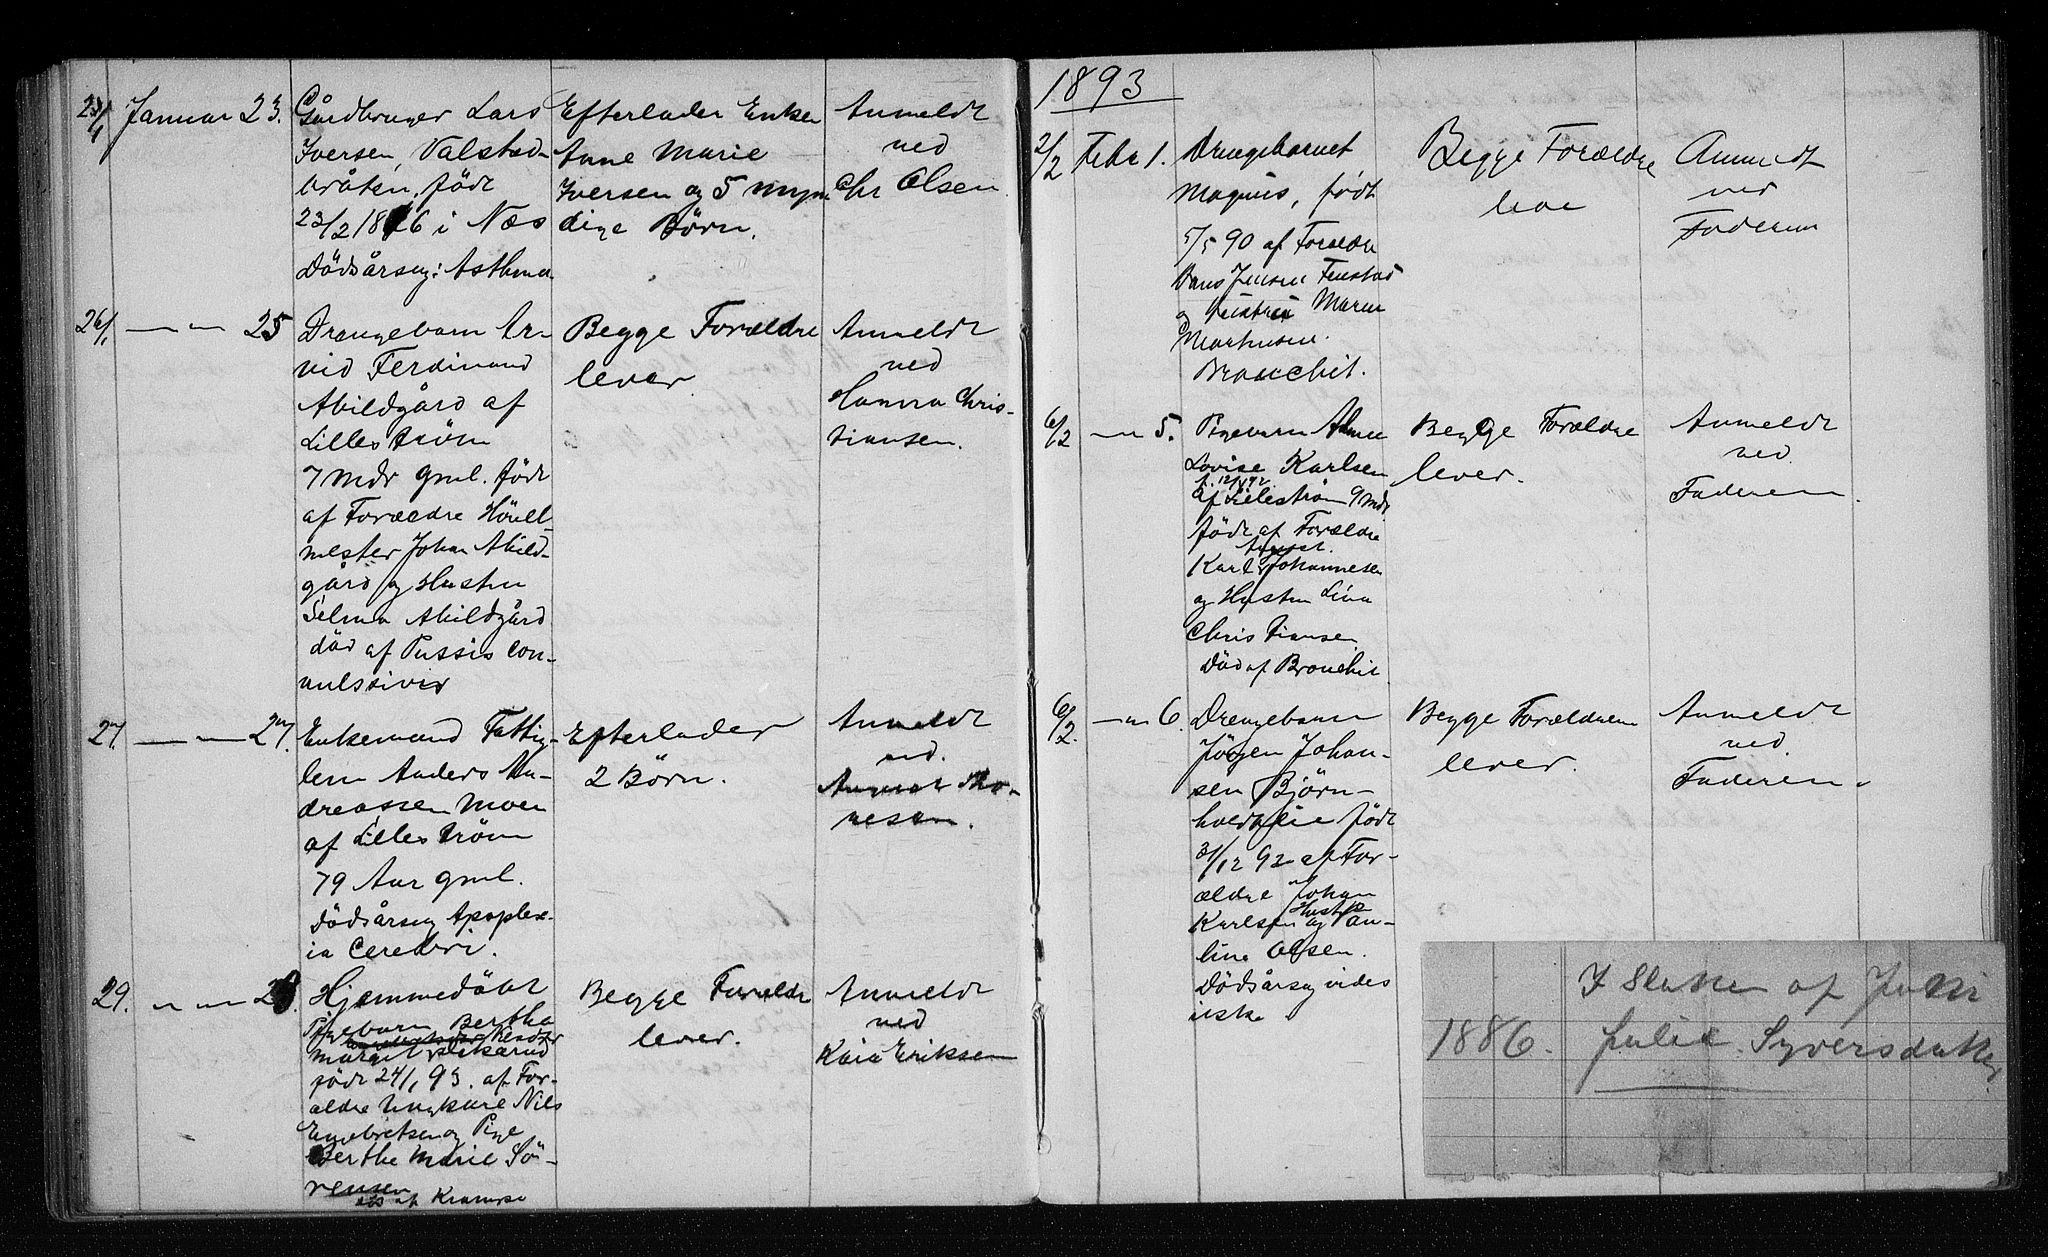 23/1 Januar 23. Gårdbruger Lars
Iversen, Valstad-
bråten, født
23/2 18 6 i Næs
Dödsårsag: Asthma
Efterlader Enken
Anne Marie
Iversen og 5 myn
dige Börn.
Anmeldt
ved
Chr Olsen
26/1 — " — 25 Drengebarn Ar-
vid Ferdinand
Abildgård af
Lilleström
7 Mdr gml. född
af Forældre
mester Johan Abild-
gård og Hustru
Selma Abildgård
död af Tussis con-
vulssivis
Begge Forældre
lever
Anmeldt
ved
Hanna Chris-
tiansen.
27. — " — 27. Enkemand Fattig-
lem Anders An-
dreassen Moen
af Lilleström
79 Aar gml.
Dödsårsag Apoplex-
ia Cerebri.
Efterlader
2 Börn.
Anmeldt
ved.
August Tho-
nesen.
29. " — " — 28. Hjemmedöbt
Pigebarn Bertha
Margit
född 24/1 93. af For-
ældre Ungkarl Nils
Engebretsen og Pige
Berthe Marie Sö-
rensen
död af Krampe
Begge Forældre
lever.
Anmeldt
ved
Kaia Eriksen
1893
2/2 Febr 1. Drengebarnet
Magnus, født
5/5 90 af Forældre
Hans Jensen
og Hustru Maren
Mathisen.
Bronchit.
Begge Forældre
leve
Anmeldt
ved
Faderen
6/2 — " 5. Pigebarn
Lovise Karlsen
f. 12/4 92.
af Lilleström 9 Mdr
född af Forældre
August.
Karl Johannesen
og Hustru Lina
Christiansen.
Död af Bronchit
Begge Forældre
lever.
Anmeldt
ved.
Faderen.
6/2. — " 6. Drengebarn
Jörgen Johan-
sen Björn-
født
3/12 92 af For-
ældre Johan
Hustru
Karlsen og Pau-
line Olsen.
Dödsårsag vides
ikke
Begge Forældrene
lever.
Anmeldt
ved.
Faderen.
I Slutten af Juni
1886. Julie Syversdatter